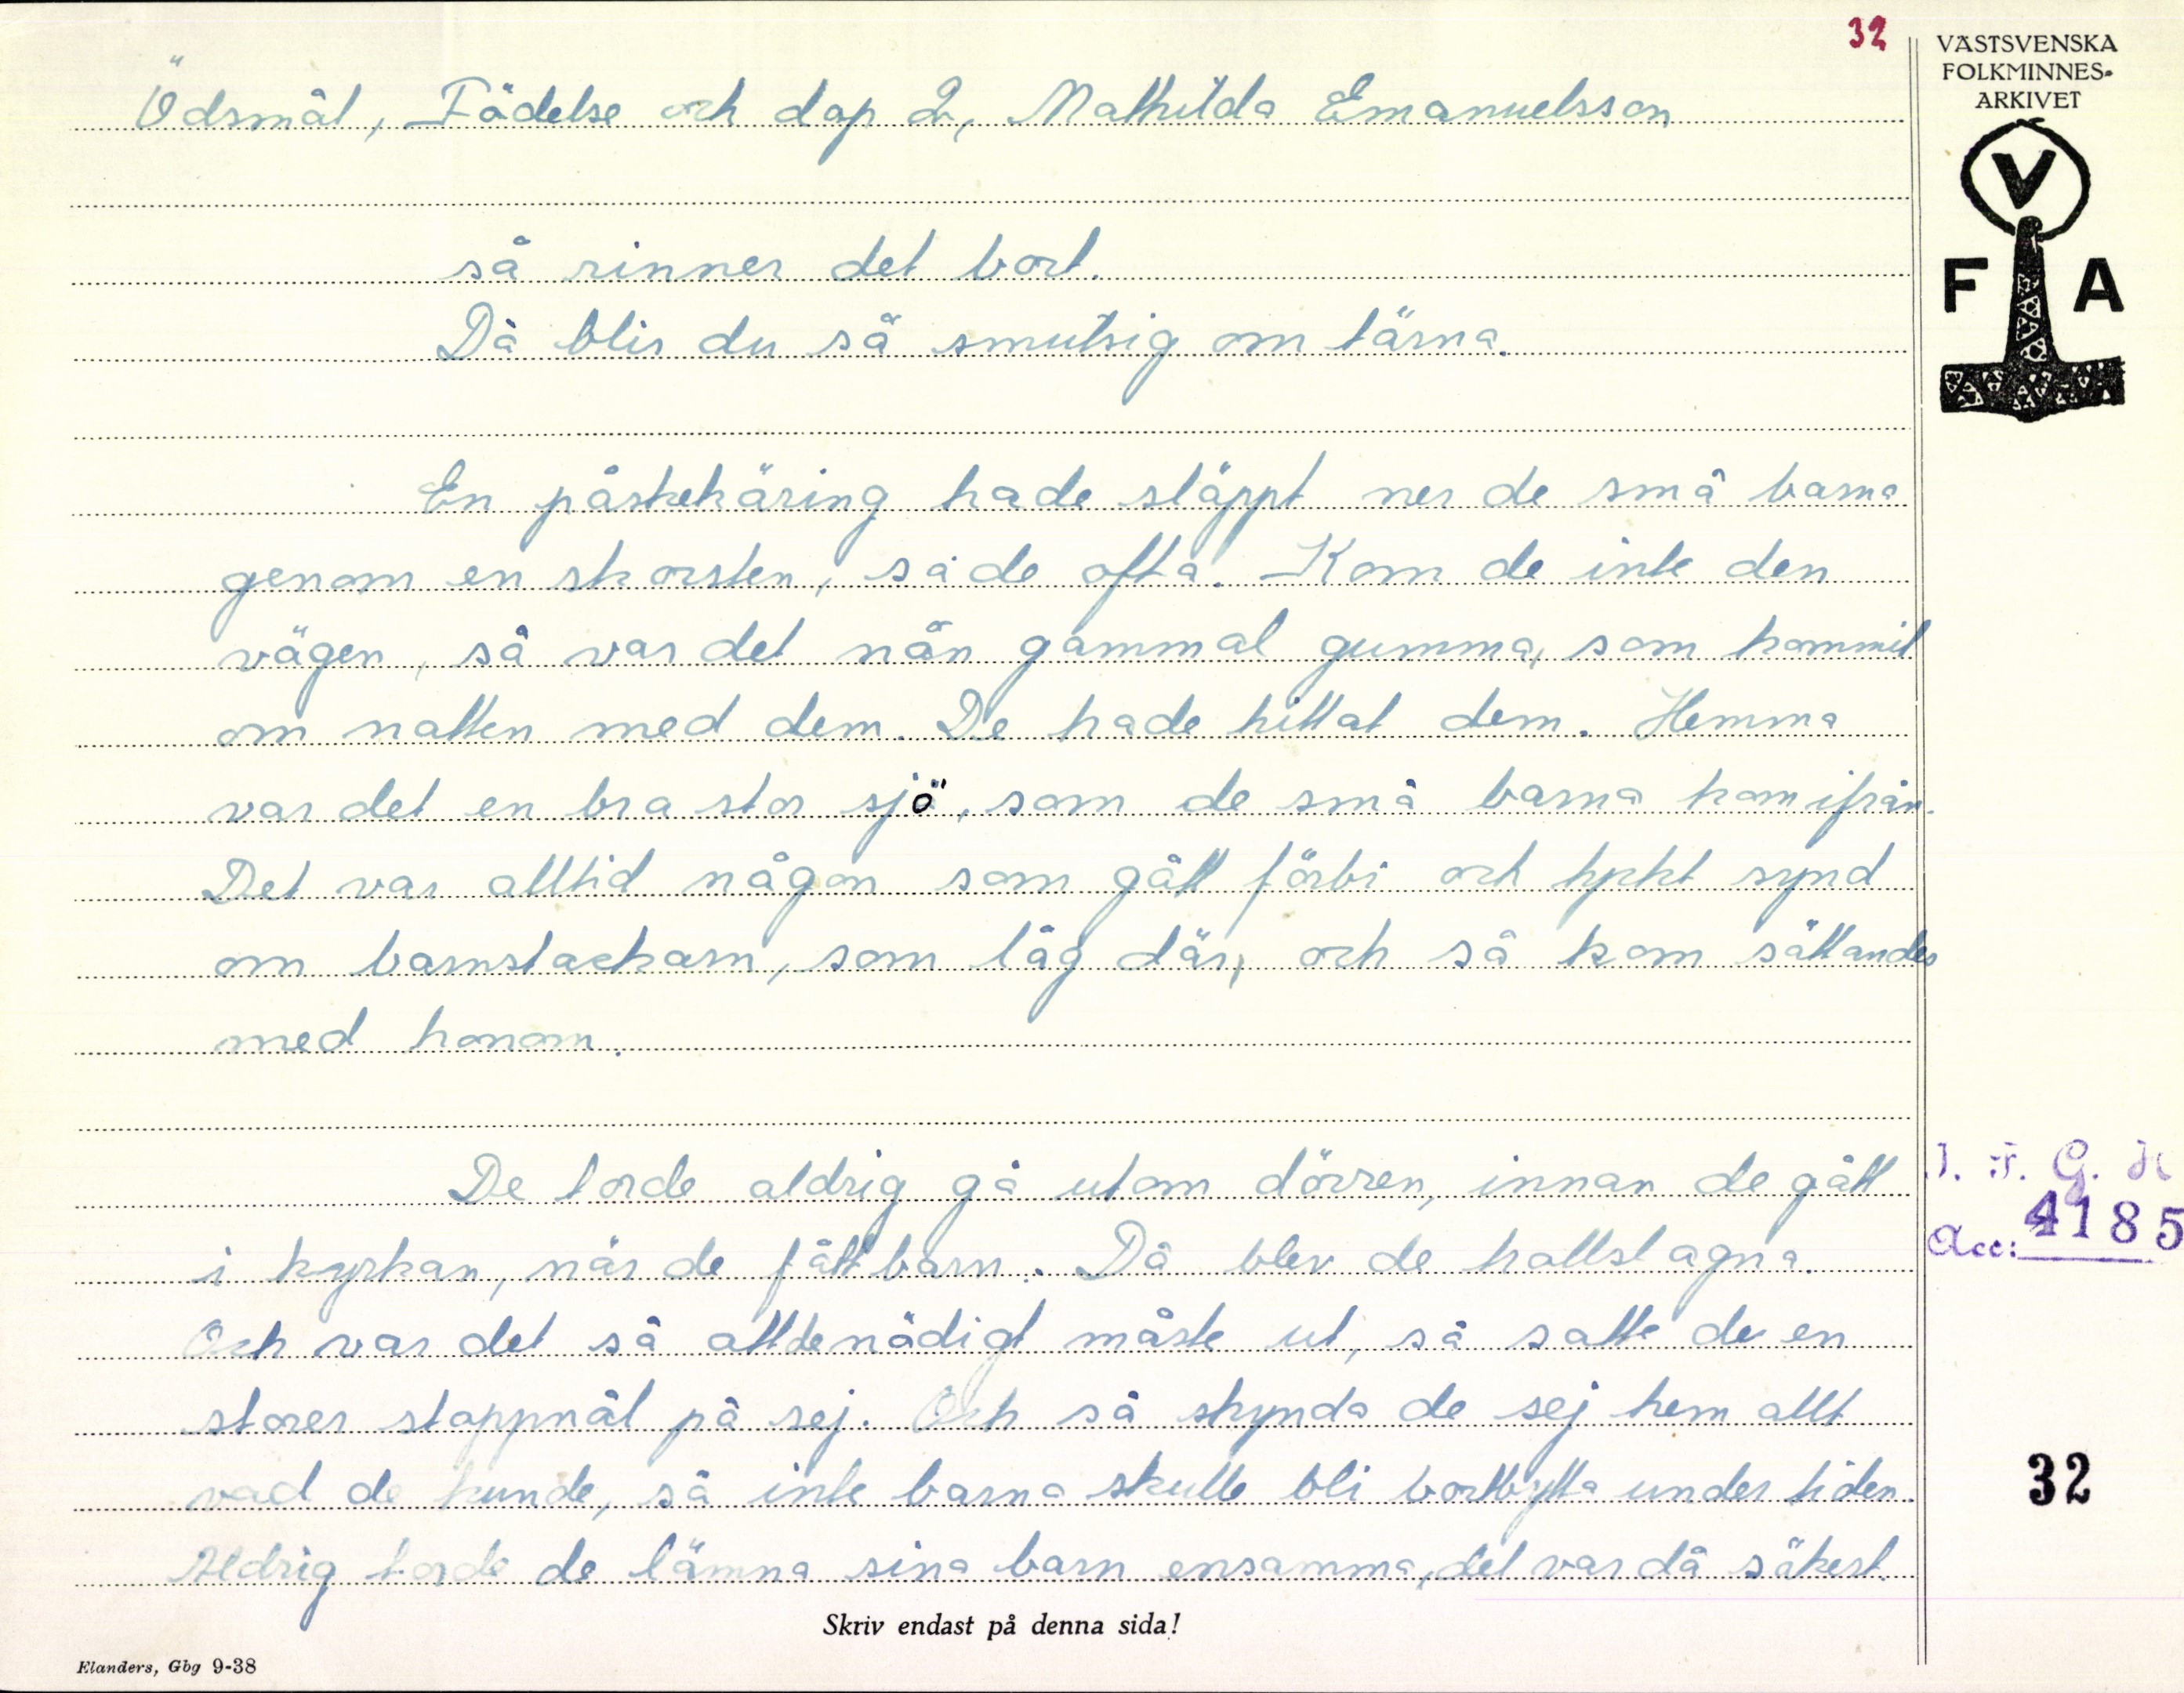 32
VÄSTSVENSKA
FOLKMINNES-
ARKIVET
V
F A
Ödsmål, Födelse och dop 2, Mathilda Emanuelsson
så rinner det bort.
Då blir du så smutsig om tårna.
En påskekäring hade släppt ner de små barna
genom en skorsten, sa de ofta. Kom de inte den
vägen, så var det nån gammal gumma, som kommit
om natten med dem. De hade hittat dem. Hemma
var det en bra stor sjö, som de små barna kom ifrån.
Det var alltid någon som gått förbi och tykt synd
om barnstackarn, som låg där, och så kom sättandes
med honom.
De torde aldrig gå utom dörren, innan de gått
i kyrkan, när de fått barn. Då blev de trollslagna.
Och var det så att de nödigt måste ut, så satte de en
storer stoppnål på sej. Och så skynda de sej hem allt
vad de kunde, så inte barna skulle bli bortbytta under tiden.
Aldrig torde de lämna sina barn ensamma, det var då säkert.
I. F. G. H
Acc: 4185
32
Skriv endast på denna sida!
Elanders, Gbg 9-38